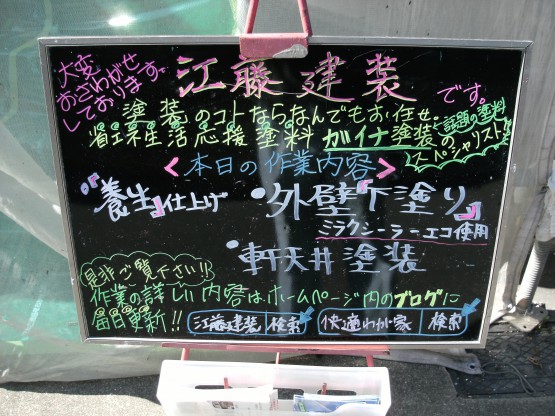 大変
おさわがせ
しております。
江藤建装
です。
塗装のコトならなんでもお任せ
省エネ生活応援塗料 ガイナ塗装の
話題の塗料
スペシャリスト
<本日の作業内容>
『養生』仕上げ
・外壁『下塗り』
ミラクシーラーエコ使用
・軒天井塗装
是非ご覧下さい!!
作業の詳しい内容はホームページ内のブログに
毎日更新!!
江藤建装 検索
快適わが家 検索